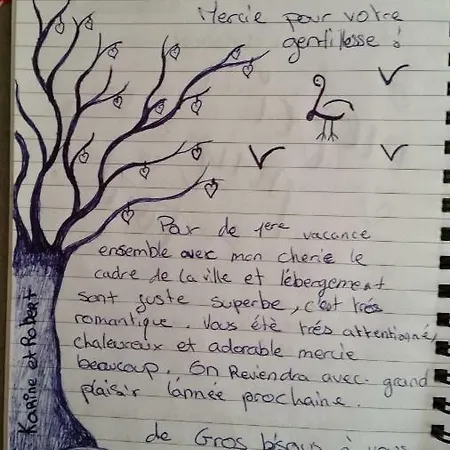 Mercie pour votre
gentillesse !
Par de 1ere vacance
ensemble avec mon cherie le
cadre de la ville et lébergement
sont juste superbe, c'est trés
romantique. Vous été trés attentionné,
chaleureux et adorable mercie
beaucoup. On Reviendra avec grand
plaisir lánnée prochaine.
de Gros bisous à vous
Karine et Robert